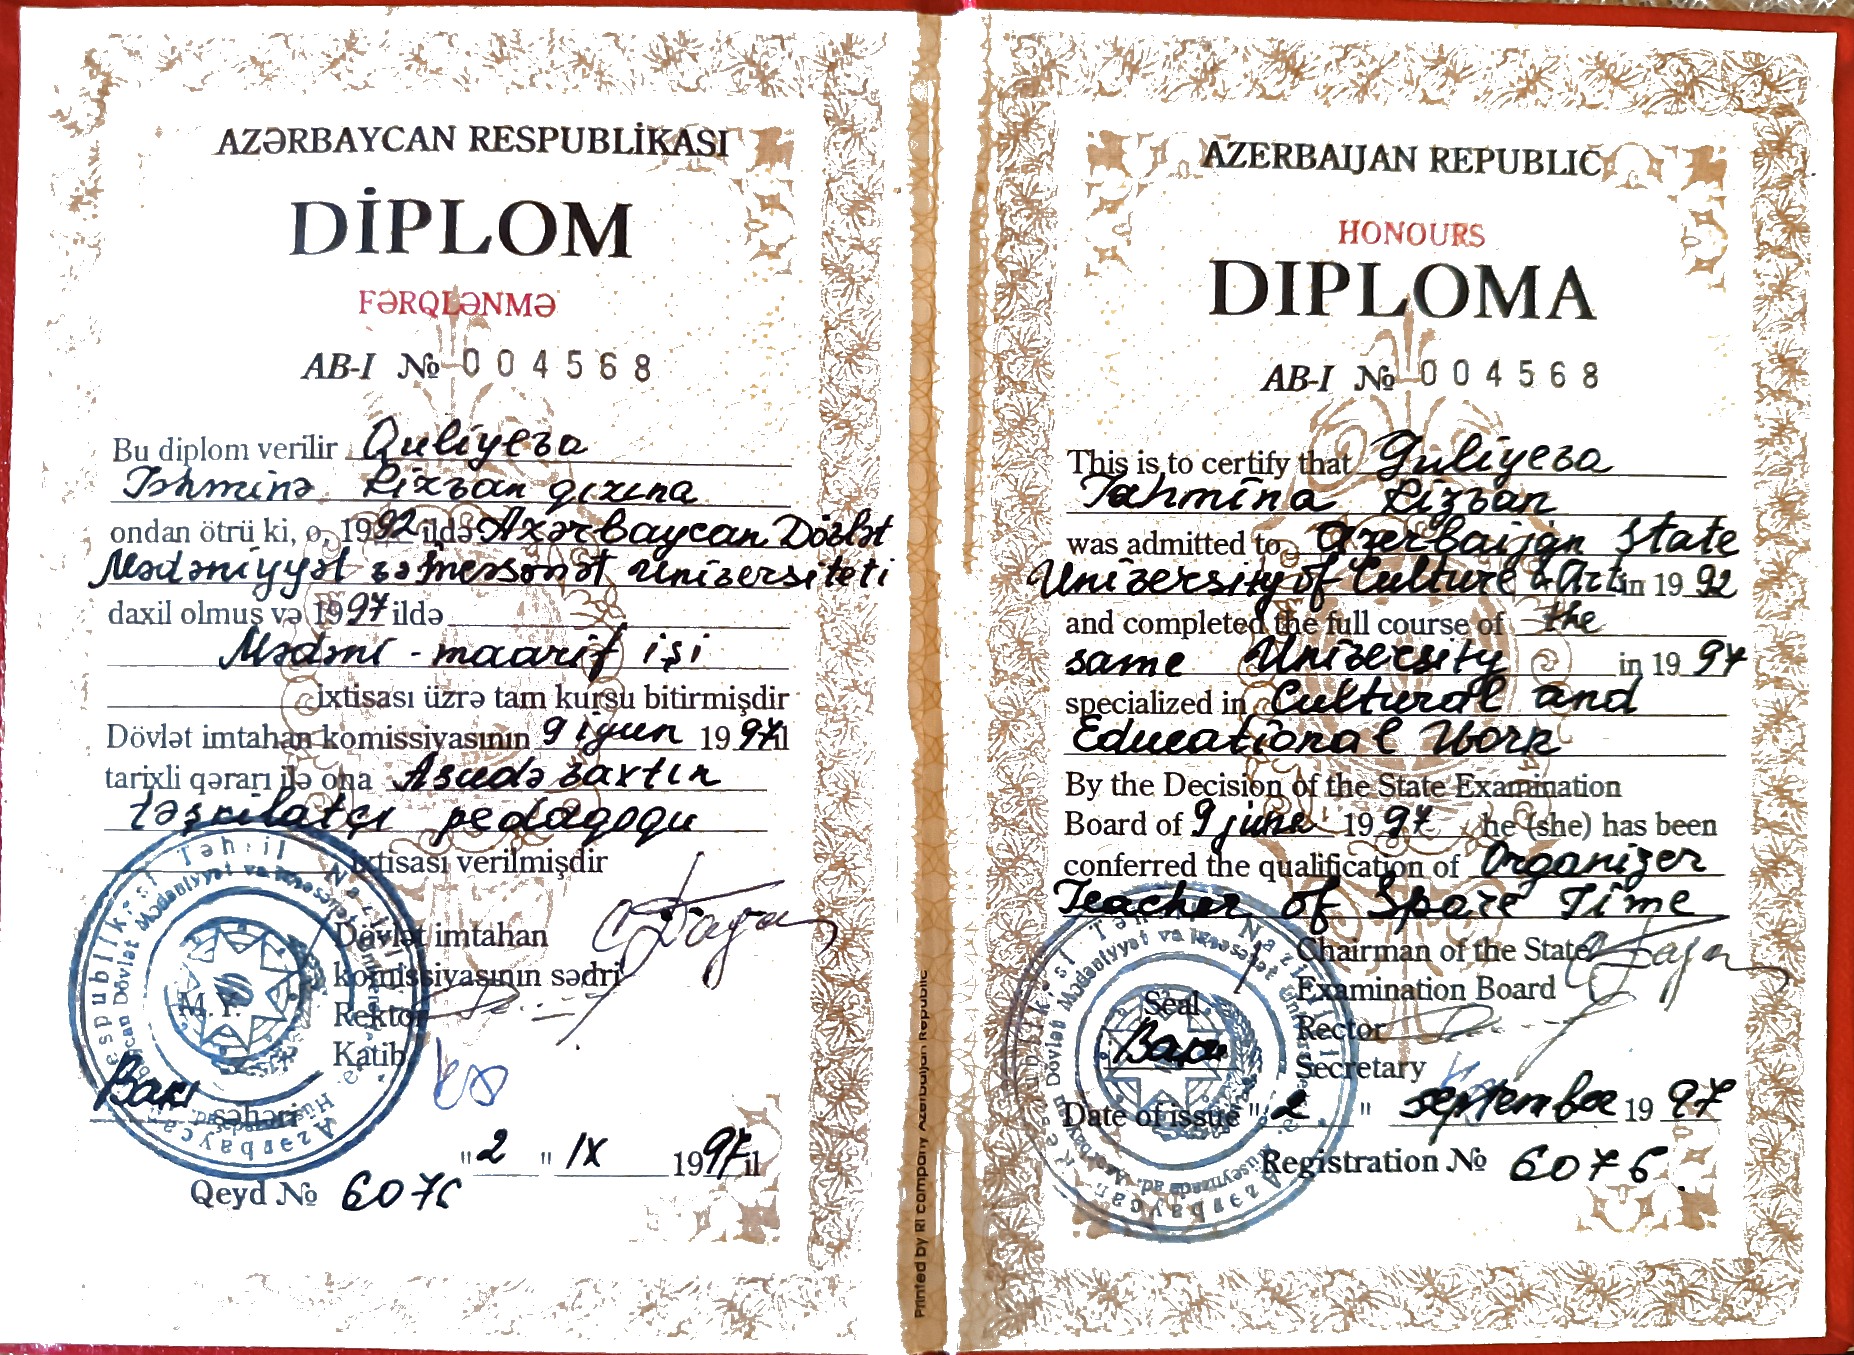 AZƏRBAYCAN RESPUBLİKASI
DİPLOM
FƏRQLƏNMƏ
AB-I № 004568
Bu diplom verilir Quliyeva
Təhminə Rizvan qızına
ondan ötrü ki, o, 1992 ildə Azərbaycan Dövlət
Mədəniyyət və İncəsənət Universiteti
daxil olmuş və 1997 ildə
Mədəni-maarif işi
ixtisası üzrə tam kursu bitirmişdir
Dövlət imtahan komissiyasının 9 iyun 1997 il
tarixli qərarı ilə ona Asudə vaxtın
təşkilatçı pedaqoqu
ixtisası verilmişdir
Dövlət imtahan
komissiyasının sədri
M.Y.
Rektor
Katib
Bakı şəhəri
"2" IX 1997 il
Qeyd № 6076
Printed by RI Company Azerbaijan Republic
AZERBAIJAN REPUBLIC
HONOURS
DIPLOMA
AB-I № 004568
This is to certify that Guliyeva
Tahmina Rizvan
was admitted to Azerbaijan State
University of Culture & Art in 1992
and completed the full course of the
same University in 1997
specialized in Cultural and
Educational Work
By the Decision of the State Examination
Board of 9 june 1997 he (she) has been
conferred the qualification of Organizer
Teacher of Spare Time
Chairman of the State
Examination Board
Seal
Rector
Baku
Secretary
Date of issue "2" september 1997
Registration № 6076